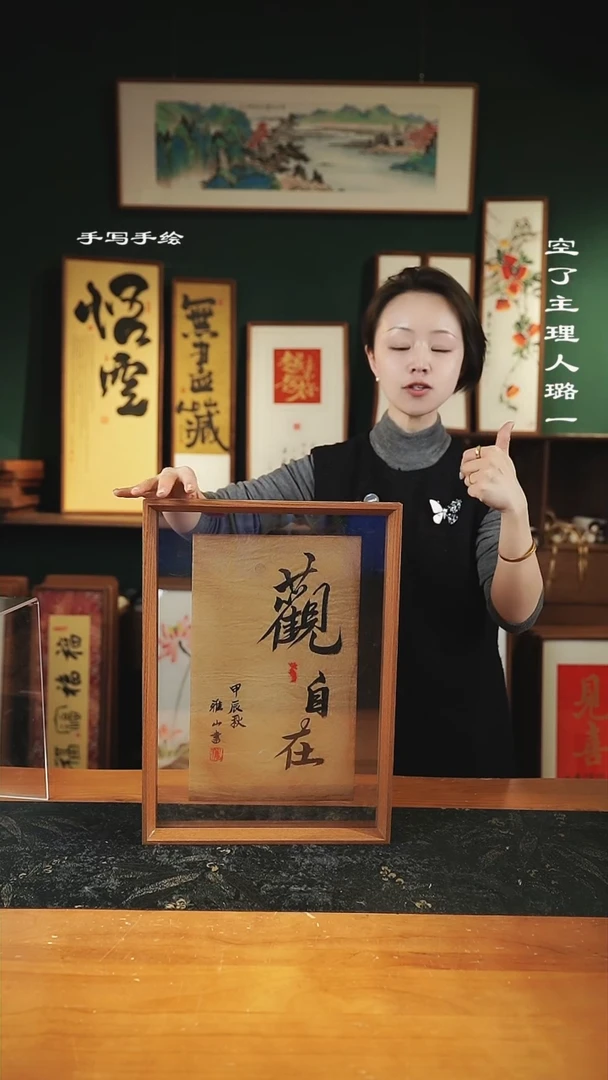 手写手绘
空了主理人璐一
悟空
無盡藏
觀自在
甲辰秋
雅山書
福福福福
見喜